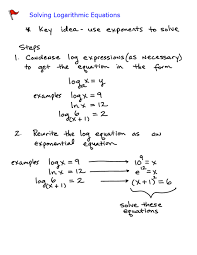 Solving Logarithmic Equations
* Key idea - use exponents to solve
Steps
1. Condense log expressions (as necessary)
to get the equation in the form
log_a x = y
examples log x = 9
ln x = 12
log_(x+1) 6 = 2
2. Rewrite the log equation as an
exponential equation.
examples log x = 9 → 10^9 = x
ln x = 12 → e^12 = x
log_(x+1) 6 = 2 → (x+1)^2 = 6
solve these
equations